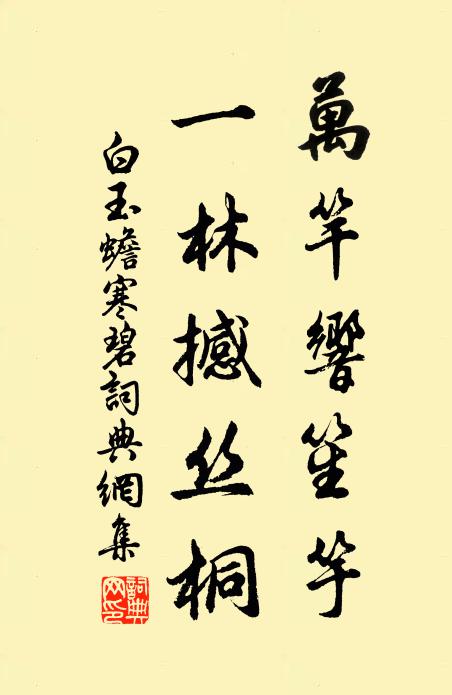 萬竿響笙竽
一林撼丝桐
白玉蟾寒碧詞典網集